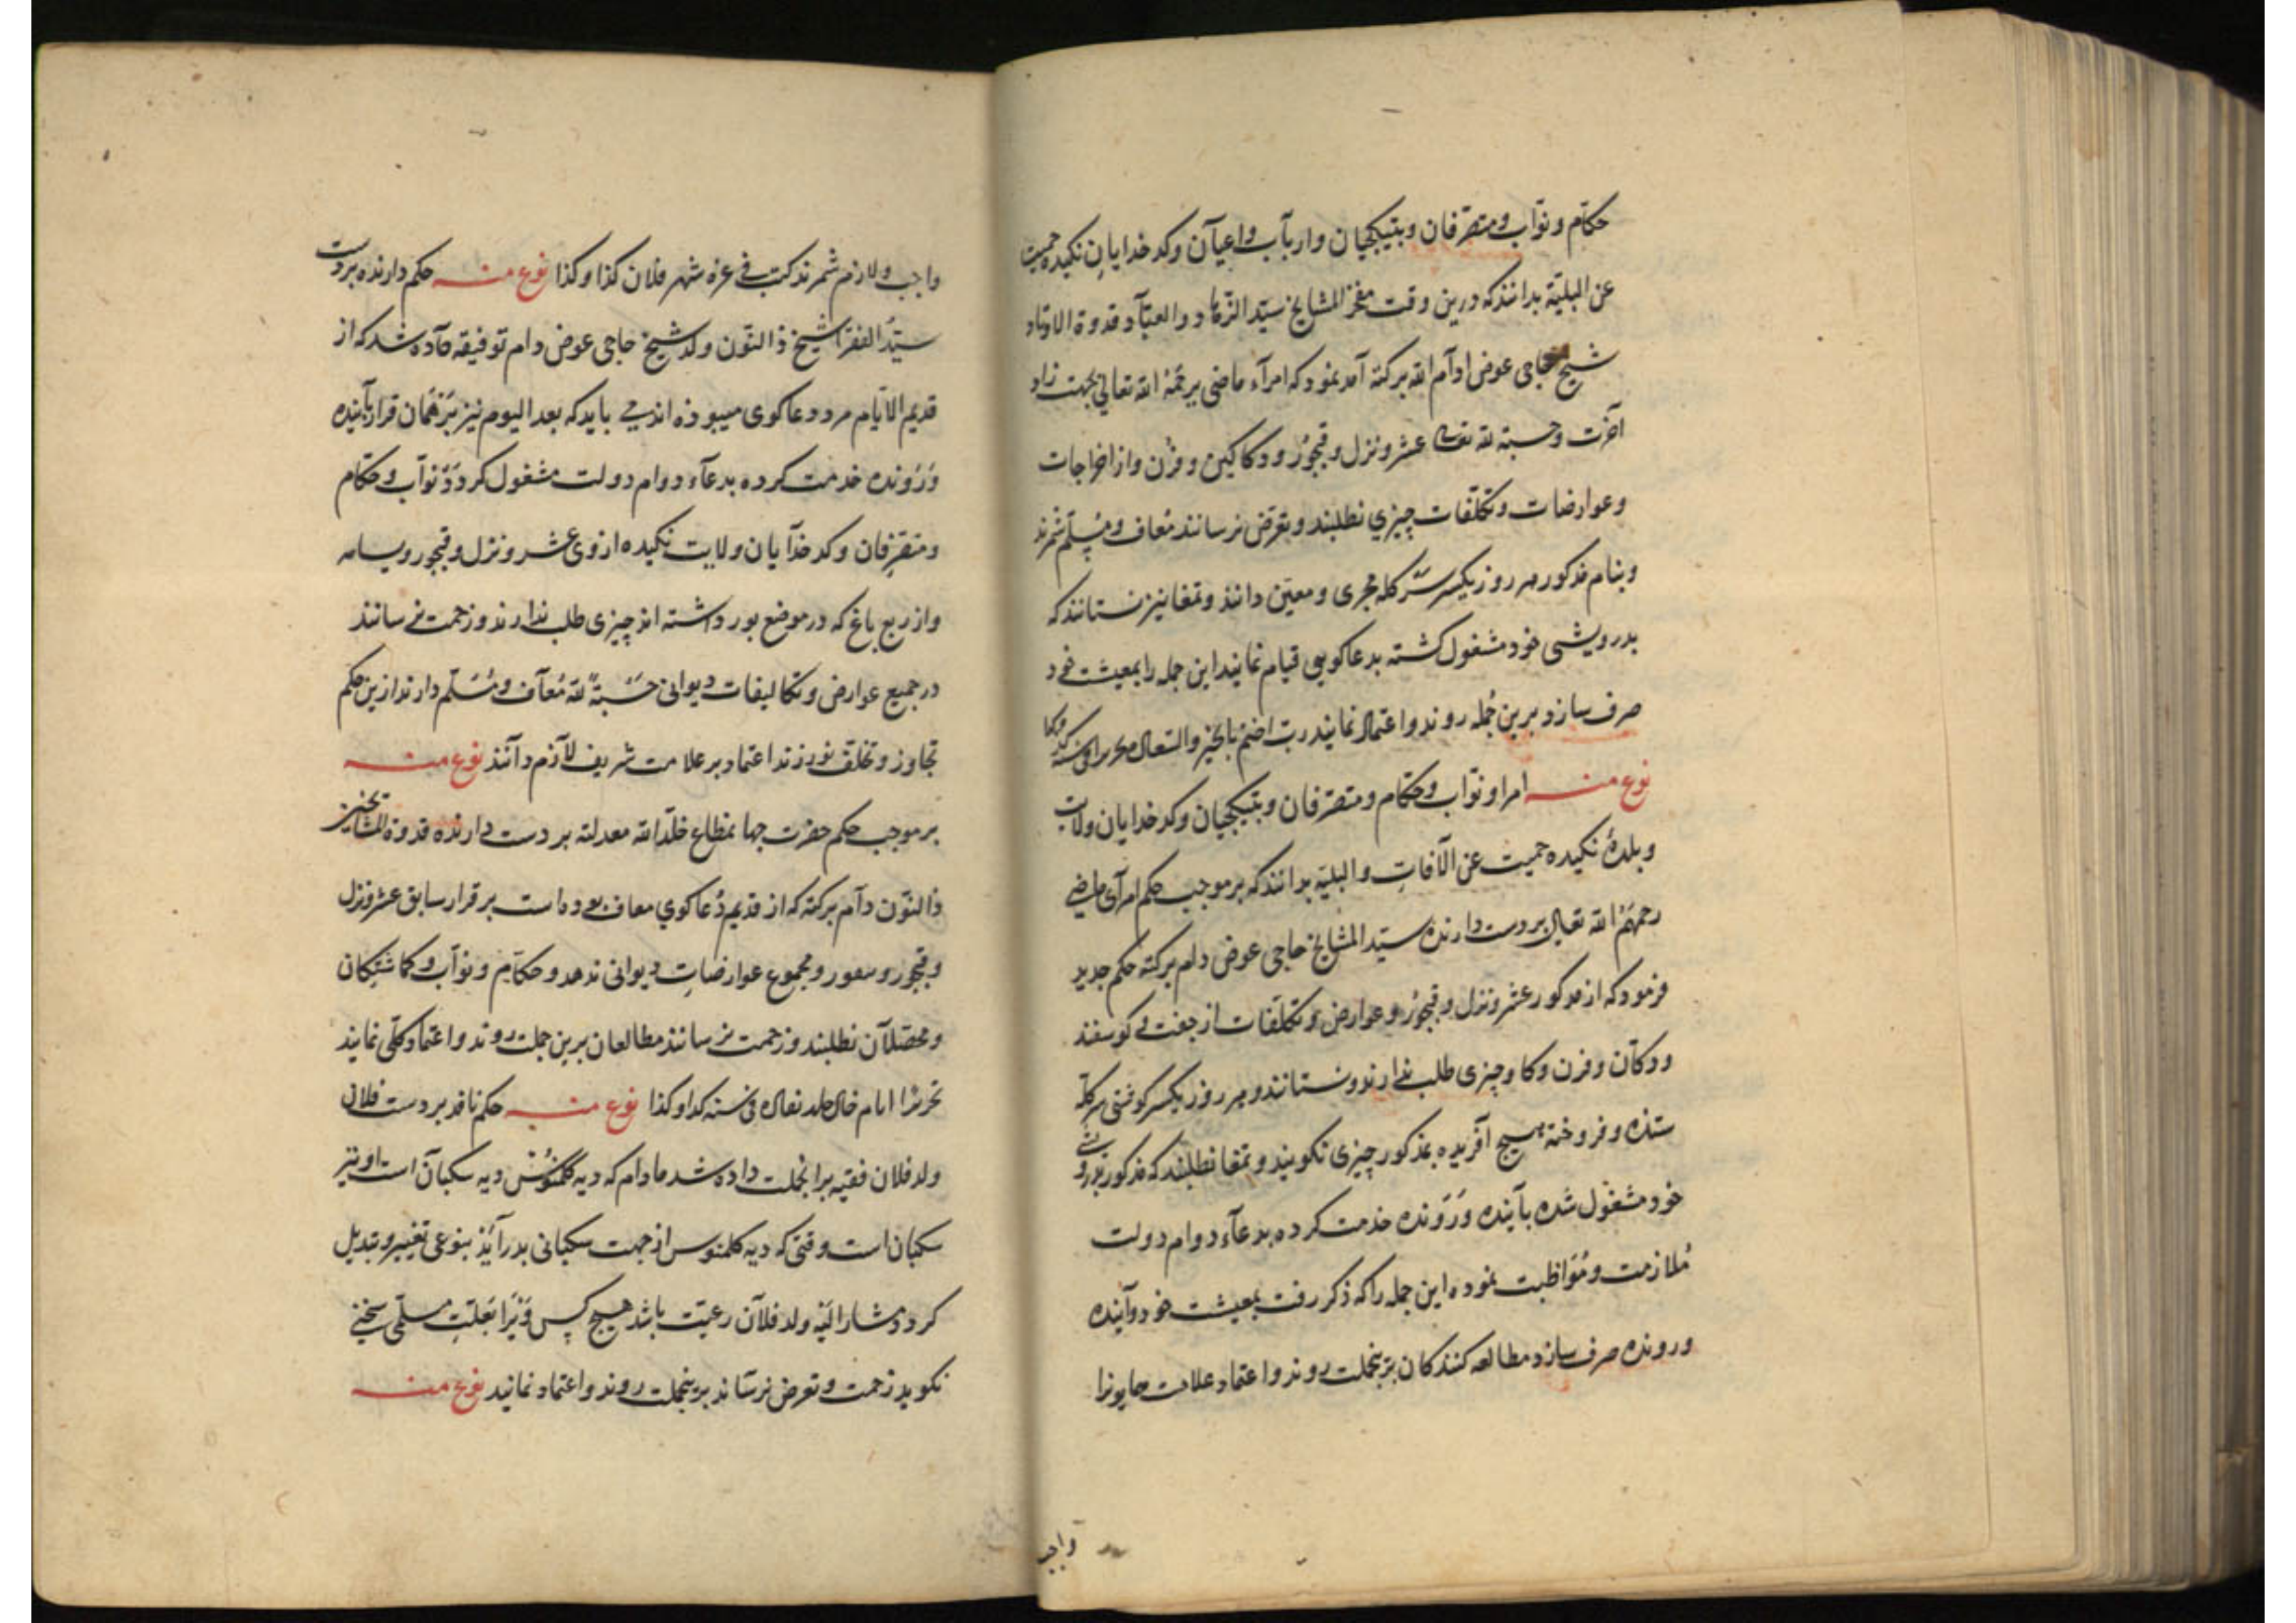 حکام و نواب و متصرفان و بتیکچیان و ارباب و اعیان و کدخدایان نکیده حمیت
عن البلیة بدانند که درین وقت مفخر المشایخ سید الزهاد والعباد قدوة الاوتاد
شیخ حاجی عوض ادام الله برکته آمد نمود که امرآء ماضی یرحمهم الله تعالی بجهت زاد
آخرت و حسبة لله تعالی عشر و نزل و قبجور و دکاکین و فرن و از اخراجات
و عوارضات و تکلفات چیزی نطلبند و تعرض نرسانند معاف و مسلم شمرند
و بنام مذکور هر روز یکسر سر کله مجری و معین دانند و تمغا نیز نستانند که
بدرویشی خود مشغول کشته بدعاکویی قیام نمایند این جمله را بمعیشت خود
صرف سازد برین جمله روند و اعتماد نمایند رب اختم بالخیر
نوع منه امرا و نواب و حکام و متصرفان و بتیکچیان و کدخدایان ولایت
و بلدهٔ نکیده حمیت عن الآفات و البلیه بدانند که بر موجب حکم امرآی ماضی
رحمهم الله تعالی بر دست دارنده سید المشایخ حاجی عوض دام برکته حکم جدید
فرمود که از مذکور عشر و نزل و قبجور و عوارض و تکلفات از جفت کوسفند
و دکان و فرن و کاو چیزی طلب ندارند و نستانند و هر روز یکسر کوفتی سر کله
ستده و فروخته هیچ آفریده بمذکور چیزی نکویند و تمغا نطلبند که مذکور بدرویشی
خود مشغول شده بآینده و رونده خدمت کرده بدعآء دوام دولت
ملازمت و مواظبت نموده این جمله را که ذکر رفت بمعیشت خود و آینده
و رونده صرف سازد مطالعه کنندکان برینجملت روند و اعتماد علامت همایونرا
واجب
واجب و لازم شمرند کتب فی غره شهر فلان کذا و کذا نوع منه حکم دارنده بر دست
سید الفقرا شیخ ذالنون ولد شیخ حاجی عوض دام توفیقه داده شد که از
قدیم الایام مرد دعاکوی میبوده اند می باید که بعد الیوم نیز بر همان قرار بآینده
و رونده خدمت کرده بدعآء دوام دولت مشغول کردد و نواب و حکام
و متصرفان و کدخدآیان ولایت نکیده از وی عشر و نزل و قبجور
و از ربع باغ که در موضع بور داشته اند چیزی طلب ندارند و زحمت نرسانند
در جمیع عوارض و تکالیفات دیوانی حسبة لله معاف و مسلم دارند ازین حکم
تجاوز و تخلف نورزند اعتماد بر علامت شریف لازم دانند نوع منه
بر موجب حکم حضرت جهانمطاع خلد الله معدلته بر دست دارنده قدوة المشایخ شیخ
ذالنون دام برکته که از قدیم دعاکوی معاف بوده است بر قرار سابق عشر و نزل
و قبجور و مجموع عوارضات دیوانی ندهد و حکام و نواب و کماشتکان
و محصلان نطلبند و زحمت نرسانند مطالعان برین جملت روند و اعتماد کلی نمایند
تحریرا فی سنه کذا و کذا نوع منه حکم نافذ بر دست فلان
ولد فلان فقیه برانجملت داده شد مادام که دیه کلمنوس دیه سکبان است او نیز
سکبان است وقتی که دیه کلمنوس از جهت سکبانی بدر آید بنوعی تغییر و تبدیل
کردد مشارالیه ولد فلان رعیت باشد هیچ کس ویرا بعلت مسلمی سخنی
نکوید زحمت و تعرض نرساند برینجملت روند و اعتماد نمایند نوع منه